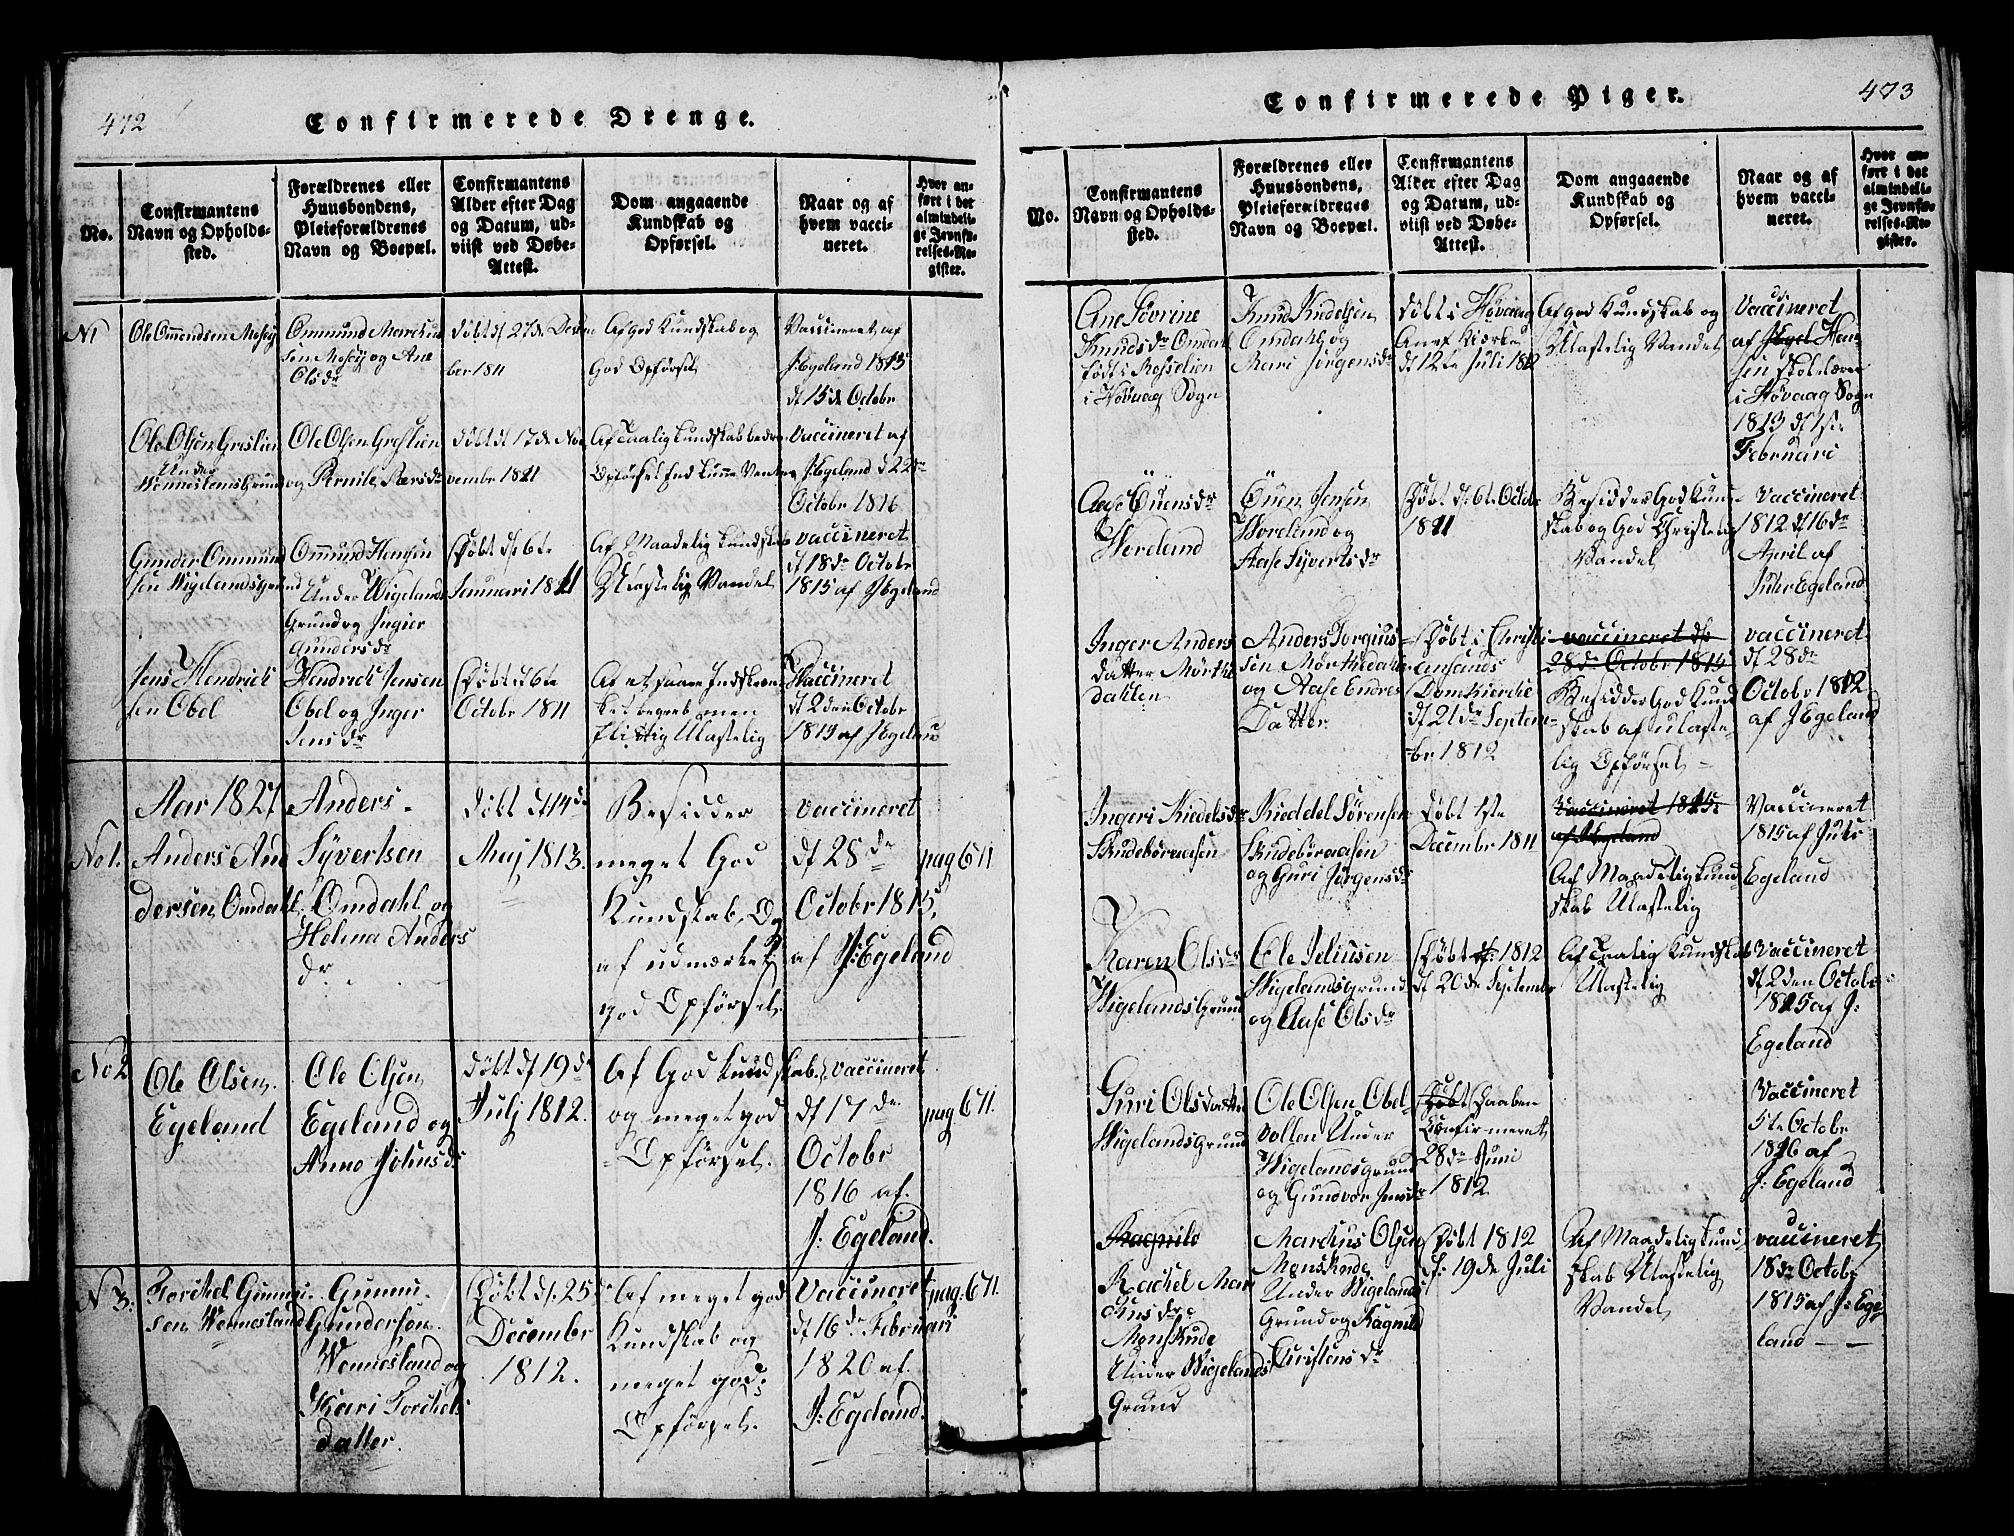 472
Confirmerede Drenge.
No.
Confirmantens
Navn og Opholds-
sted.
Forældrenes eller
Huusbondens,
Pleieforældrenes
Navn og Boepæl.
Confirmantens
Alder efter Dag
og Datum, ud-
viist ved Døbe-
Attest.
Dom angaaende
Kundskab og
Opførsel.
Naar og af
hvem vacci-
neret.
Hvor an-
ført i det
almindeli-
ge Jevnfø-
relses-Re-
gister.
N1
Ole Ommendsen Mosey
Ommund Marcusen
sen Mosey og Ane
Olsdr
døbt d 27de Decem
ber 1811
Af god Kundskab og
God Opførsel
Vaccineret af
J Egeland 1813
d 15de Octobr
Ole Olsen Greslien
Under
Wenneslands Grund
Ole Olsen Greslien
og Pernile Pærsdr
døbt d 17de No
vembr 1811
Af Taalig Kundskab bedre
Opførsel End kunne Ventes
Vaccineret af
J Egeland d 22de
Octobr 1816
Gunder Ommund
sen Wigelandsgrund
Ommund Hansen
Under Wigelands
Grund og Ingier
Gundersdr
Døbt d 6te
Januari 1811
Af Maadelig Kundskab
Ulastelig Vandel
vaccineret
d 18de Octobr
1815 af J Egeland
Jens Hendrick
sen Obel
Hendrick Jensen
Obel og Inger
Jensdr
Døbt d 6te
Octobr 1811
Af et svare Indskræn
ket begreb men
flittig Ulastelig
Vaccineret
d 2den Octobr
1815 af J Egeland
Aar 1827
No 1.
Anders And
dersen, Omdahl
Anders
Syvertsen
Omdahl og
Helena Anders
dr.
døbt d 14de
Maj 1813.
Besidder
meget God
Kundskab, Og
af udmærket
god Opførsel.
vaccineret
d 28de
Octobr 1815,
af J: Egeland
pag 671
No 2
Ole Olsen.
Egeland
Ole Olsen
Egeland og
Anne Johnsdr
døbt d 19de
Julj 1812.
Af God Kundskab.
og meget god
Opførsel.
vaccineret
d 17de
Octobr
1816 af.
J: Egeland.
pag 671.
N 3.
Torchel Gunnu
sen Wennesland
Gunnu
Gundersen.
Wennesland og
Kari Torchels
datter.
Døbt d. 25
December
1812.
Af meget god
Kundskab og
meget god
Opførsel.
Vaccineret
d 16de Februari
1820 af.
J: Egeland.
pag. 671.
473
Confirmerede Piger.
No.
Confirmantens
Navn og Opholds-
sted.
Forældrenes eller
Huusbondens,
Pleieforældrenes
Navn og Boepæl.
Confirmantens
Alder efter Dag
og Datum, ud-
viist ved Døbe-
Attest.
Dom angaaende
Kundskab og
Opførsel.
Naar og af
hvem vacci-
neret.
Hvor an-
ført i det
almindeli-
ge Jevnfø-
relses-Re-
gister.
Ane Sovrine
Knudsdr Omdahl
født i Rosselien
i Høvaag Sogn
Knud Knudsen
Omdahl og
Mari Jørgensdr
døbt i Høvaag
Anex Kierke
d 12te Juli 1812
Af god Kundskab og
Ulastelig Vandel
Vaccineret
af Jegel Han
sen Skolelærer
i Høvaag Sogn
1813 d 1ste
Februari
Aase Ouensdr
Hereland
Ouen Jensen
Horeland og
Aase Syvertsdr
Døbt d 6te Octobr
1811
Besidder God Kund
skab og God Christelig
Vandel
vaccineret
1812 d 16de
April af
Juhr Egeland
Inger Anders
datter Mørtke
dahlen
Anders Torgius
sen Mørtkedahlen
og Aase Endres
Datter
Døbt i Christi
ansands
Domkierche
d 21de Septem
br 1812
vaccineret d
28de Octobr 1812
Besidder God Kund
skab af ulaste
lig Opførsel
vaccineret
d 28de
Octobr 1812
af J Egeland
Ingeri Kiedelsdr
Skudeboraasen
Kieddel Sørensen
Skudeboraasen
og Guri Jørgensdr
Døbt 1ste
December 1811
Vaccineret 1815
af J Egeland
Af Maadelig Kund
skab Ulastelig
Vaccineret
1815 af Juhr
Egeland
Karen Olsdr
Wigelands Grund
Ole Jeliusen
Wigelandsgrund
og Aase Olsdr
Døbt 1812
d 20de Septembr
Af Taalig Kundskab
Ulastelig
Vaccineret
d 2den Octobr
1815 af J:
Egeland
Guri Olsdatter
Wigelandsgrund
Ole Olsen Obel
vollen Under
Wigelandsgrund
og Gundvor Jensdr
Døbt Daaben
Confirmeret
28de Juni
1812
Vaccineret
5te Octobr
1816 af
J: Egeland
Ragnild
Rachel Mar
kusdr
Monskude
Under Wigelands
Grund
Marchus Olsen
Monskude
Under Wigelands
Grund og Ragnild
Christensdr
Døbt 1812
d: 19de Juli
Af Maadelig Kund
skab Ulastelig
Vandel
vaccineret
18de Octobr
1815 af J: Ege
land